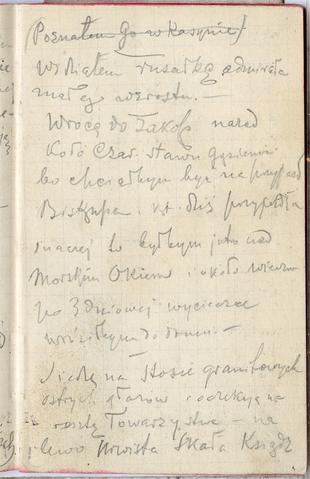 (Poznałem Go w Kasynie)
Widziałem rusałkę admirała
małego wzrostu. —
Wrócę do Zakop. nazad
Koło Czar. stawu Gąsienic.
bo chciałbym być na przyjazd
Biskupa. kt. dziś przyjeżdża
inaczej to byłbym jutro nad
Morskiem Okiem i około wieczora
po 3 dniowej wycieczce
wróciłbym do domu. —
Siedzę na stosie granitowych
ostrych głazów i czekają na
resztę Towarzystwa — na
lewo Urwista Skała Ksiądz